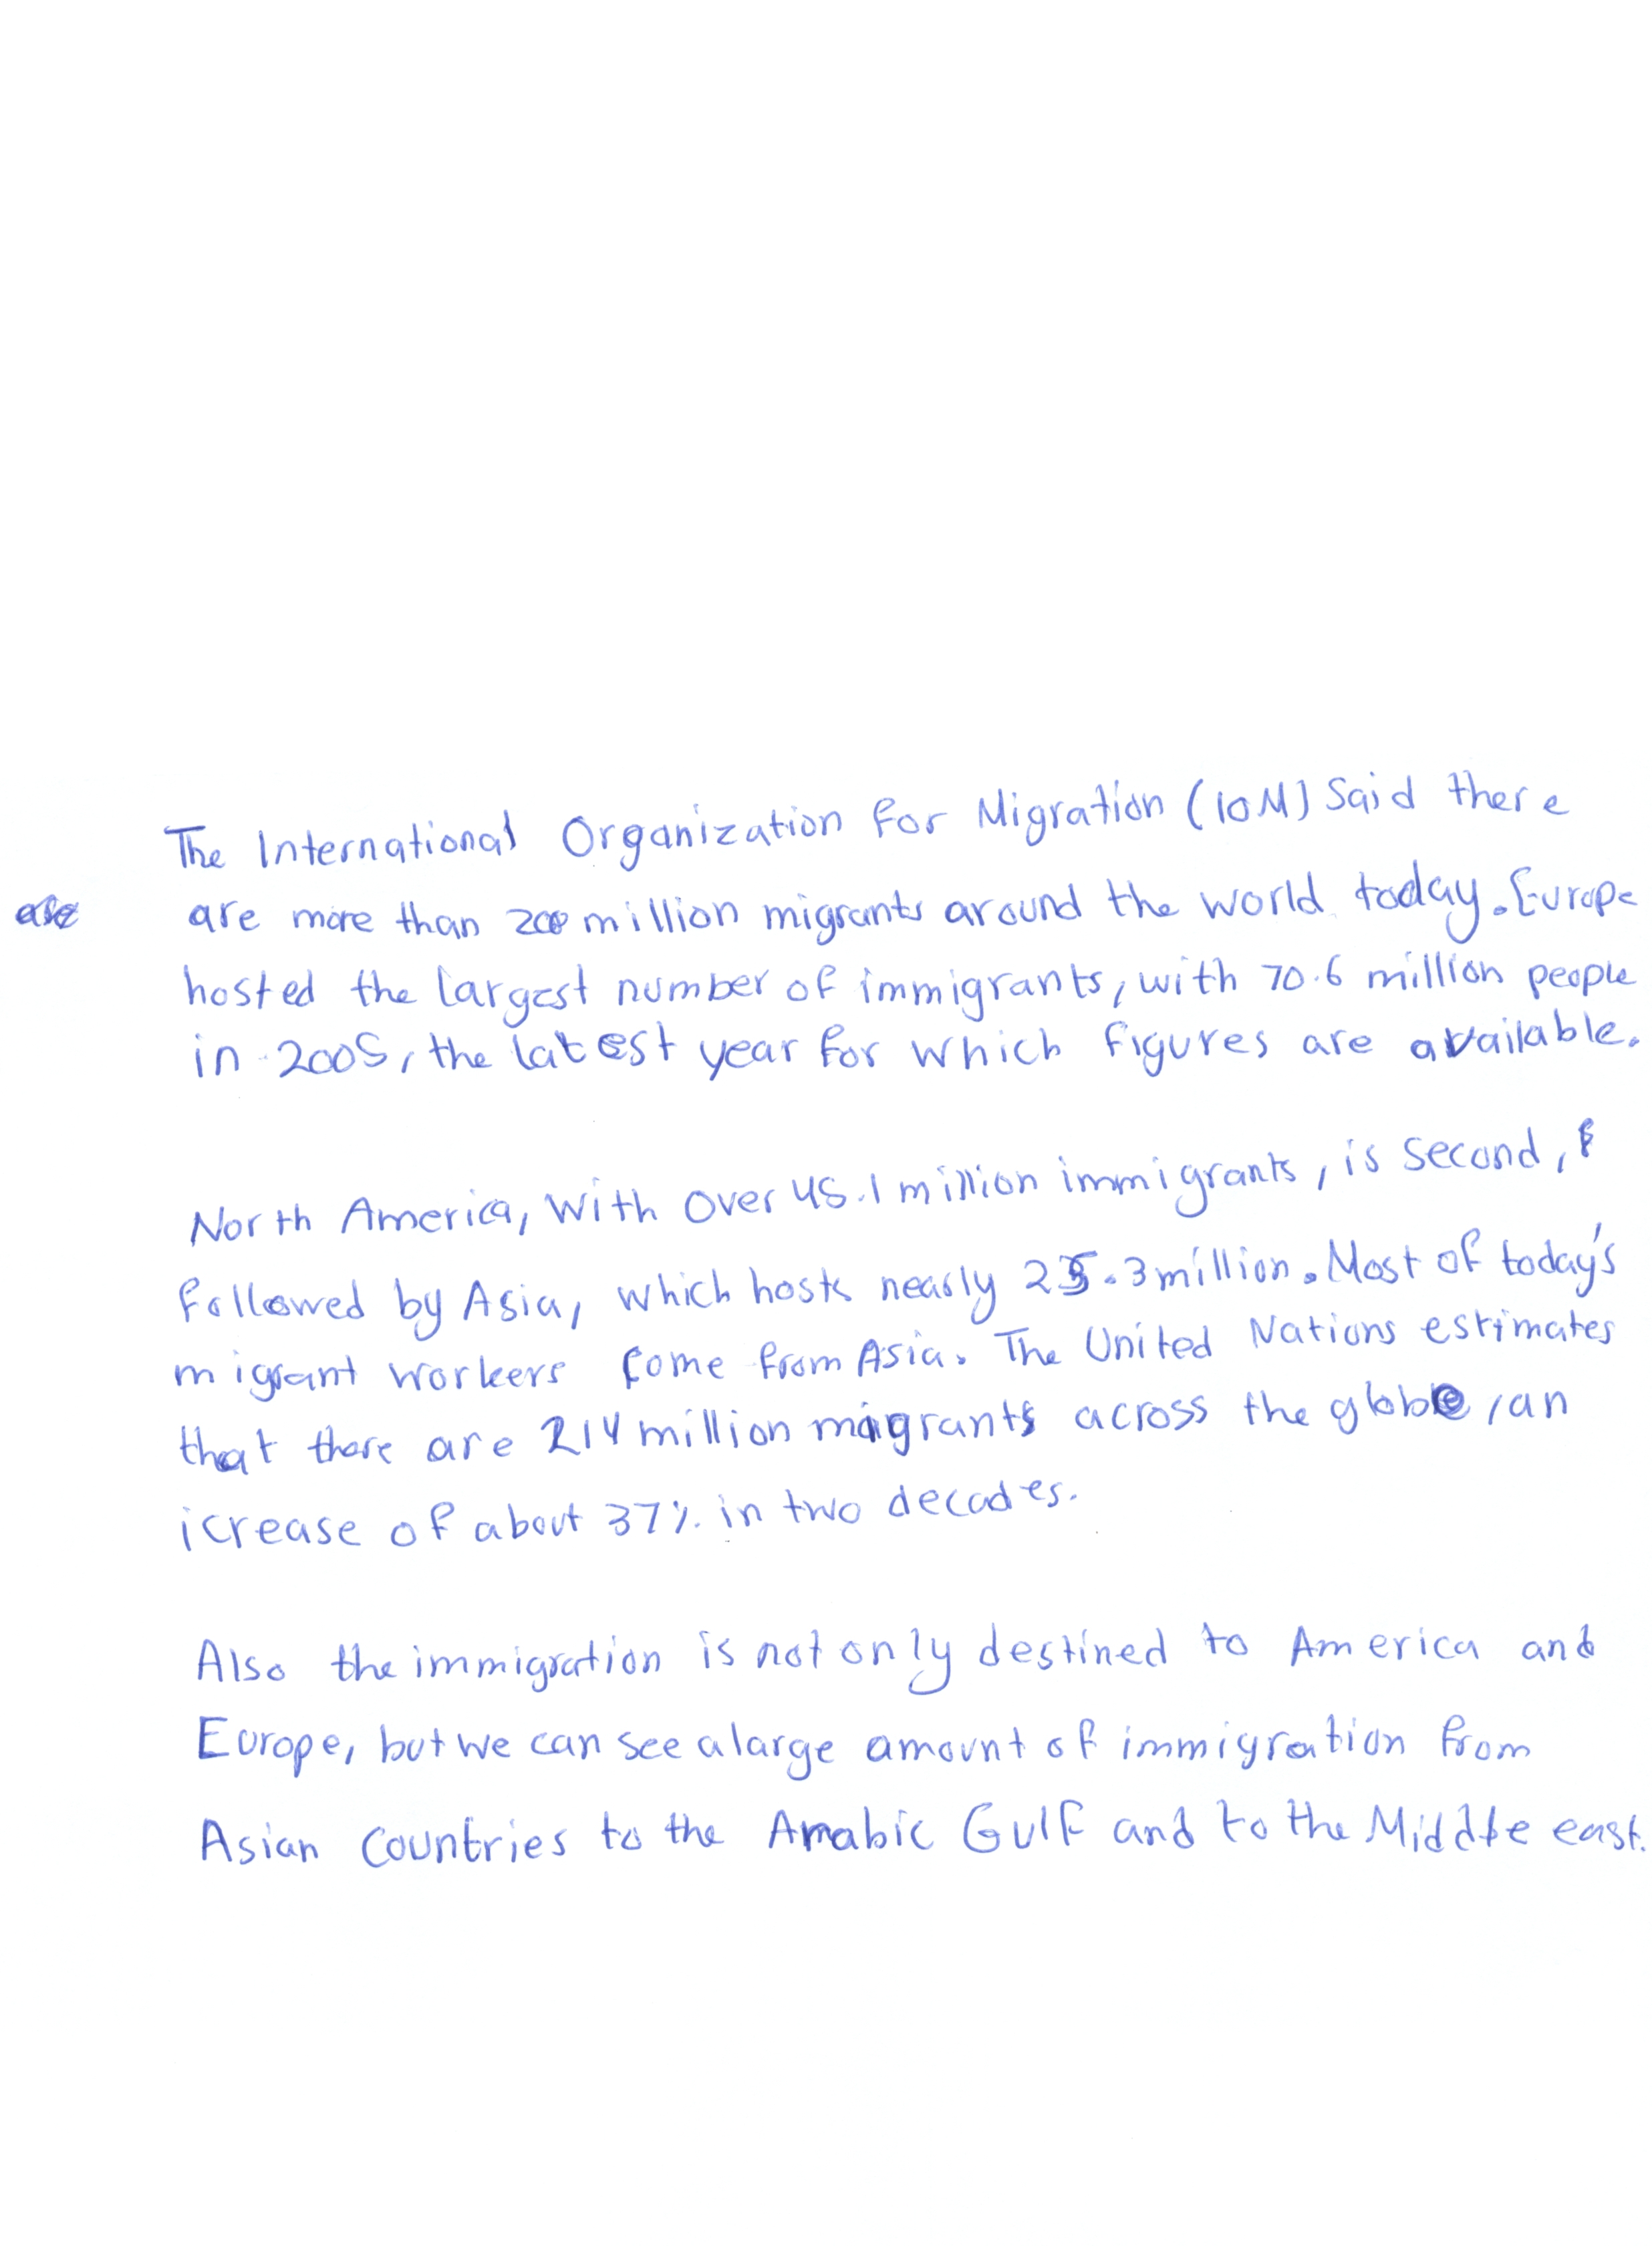 The International Organization for Migration (IOM) Said there
are more than 200 million migrants around the world today. Europe
hosted the largest number of immigrants, with 70.6 million people
in 2005, the latest year for which figures are available.
North America, with over 45.1 million immigrants, is second,
followed by Asia, which hosts nearly 25.3 million. Most of today's
migrant workers come from Asia. The United Nations estimates
that there are 214 million migrants across the globe, an
icrease of about 37% in two decades.
Also the immigration is not only destined to America and
Europe, but we can see a large amount of immigration from
Asian Countries to the Arabic Gulf and to the Middle east.